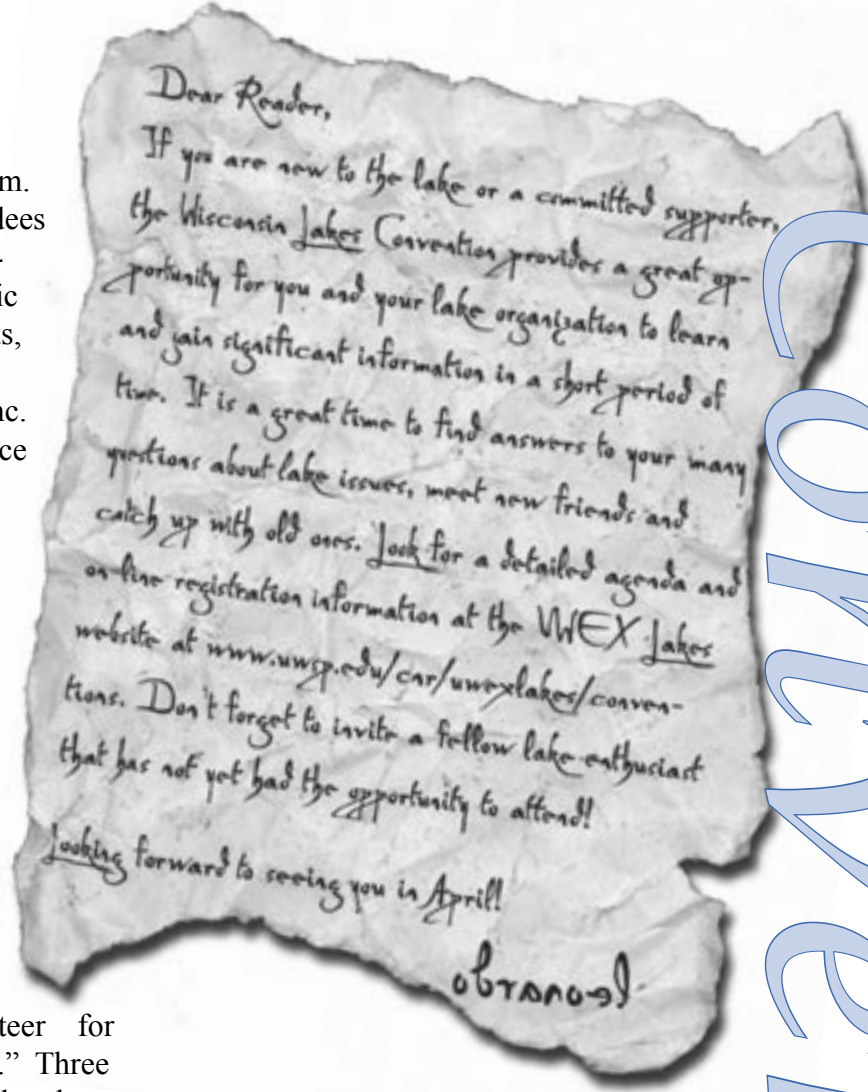 m.
lees
-
ic
s,
nc.
ce
Dear Reader,
If you are new to the lake or a committed supporter,
the Wisconsin Lakes Convention provides a great op-
portunity for you and your lake organization to learn
and gain significant information in a short period of
time. It is a great time to find answers to your many
questions about lake issues, meet new friends and
catch up with old ones. Look for a detailed agenda and
on-line registration information at the UWEX Lakes
website at www.uwsp.edu/cnr/uwexlakes/conven-
tions. Don't forget to invite a fellow lake enthusiast
that has not yet had the opportunity to attend!
Looking forward to seeing you in April!
Leonardo
teer for
.” Three
Conve